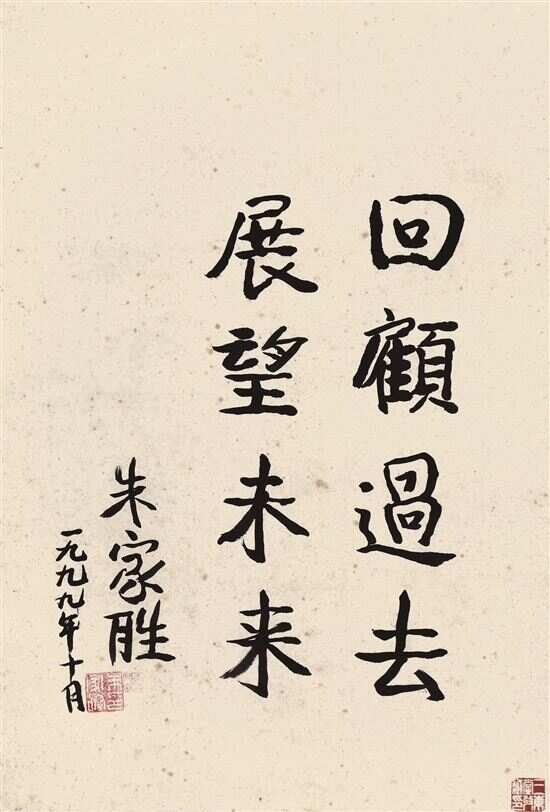 回顧過去
展望未来
朱家胜
一九九九年十月